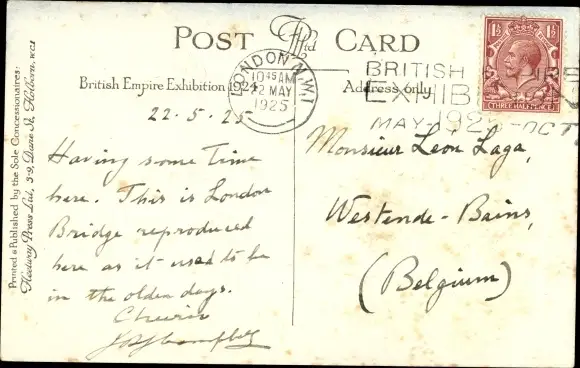 POST CARD
British Empire Exhibition 1924
Address only
LONDON N.W.1
10 45 AM
22 MAY
1925
BRITISH EMPIRE
EXHIBITION
MAY-1925-OCT.
1½ 1½
THREE HALFPENCE
22.5.25
Having some time
here. This is London
Bridge reproduced
here as it used to be
in the olden days.
Cheerio
Campbell
Monsieur Léon Laga,
Westende-Bains,
(Belgium)
Printed & Published by the Sole Concessionaires:
Fleetway Press Ltd., 3-9, Dane St., Holborn. W.C.1